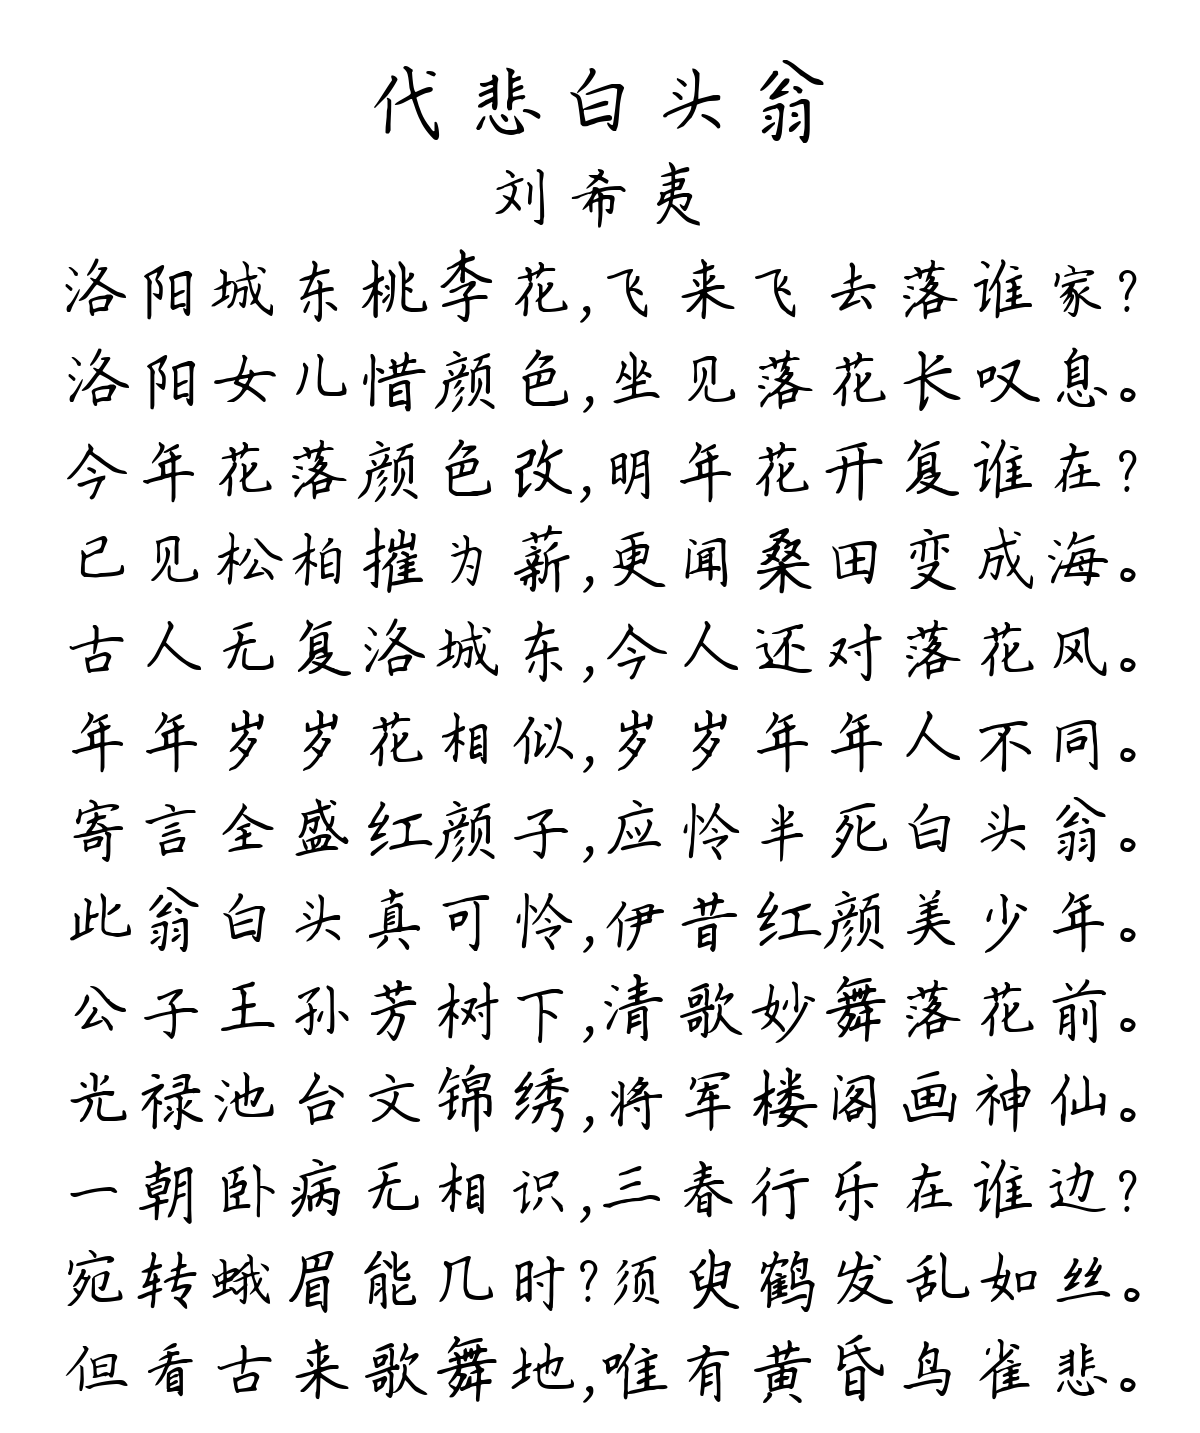 代悲白头翁
刘希夷
洛阳城东桃李花,飞来飞去落谁家?
洛阳女儿惜颜色,坐见落花长叹息。
今年花落颜色改,明年花开复谁在?
已见松柏摧为薪,更闻桑田变成海。
古人无复洛城东,今人还对落花风。
年年岁岁花相似,岁岁年年人不同。
寄言全盛红颜子,应怜半死白头翁。
此翁白头真可怜,伊昔红颜美少年。
公子王孙芳树下,清歌妙舞落花前。
光禄池台文锦绣,将军楼阁画神仙。
一朝卧病无相识,三春行乐在谁边?
宛转蛾眉能几时?须臾鹤发乱如丝。
但看古来歌舞地,唯有黄昏鸟雀悲。